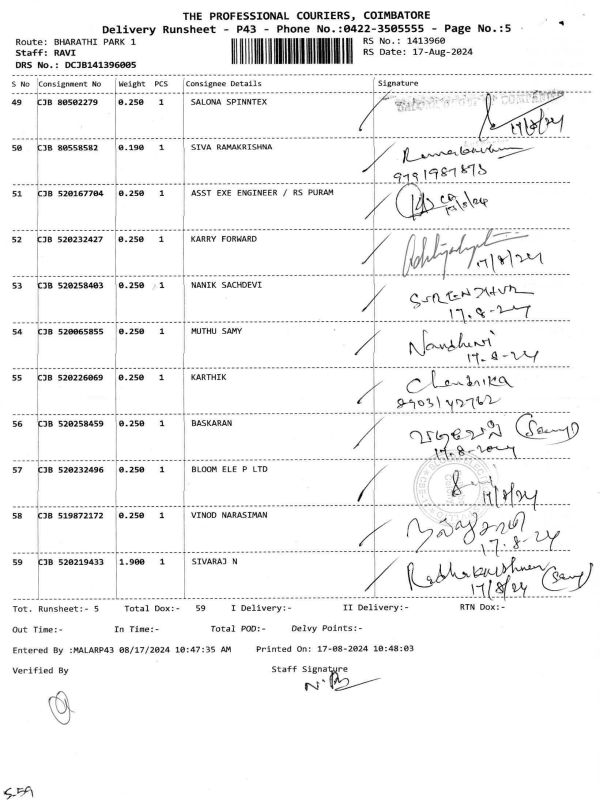 THE PROFESSIONAL COURIERS, COIMBATORE
Delivery Runsheet - P43 - Phone No.:0422-3505555 - Page No.:5
Route: BHARATHI PARK 1 RS No.: 1413960
Staff: RAVI RS Date: 17-Aug-2024
DRS No.: DCJB141396005
S No Consignment No Weight PCS Consignee Details Signature
49 CJB 80502279 0.250 1 SALONA SPINNTEX
17/8/24
50 CJB 80558582 0.190 1 SIVA RAMAKRISHNA
9791987873
51 CJB 520167704 0.250 1 ASST EXE ENGINEER / RS PURAM
52 CJB 520232427 0.250 1 KARRY FORWARD
17/8/24
53 CJB 520258403 0.250 1 NANIK SACHDEVI
17.8-24
54 CJB 520065855 0.250 1 MUTHU SAMY
17.8-24
55 CJB 520226069 0.250 1 KARTHIK Chandrika
8903142762
56 CJB 520258459 0.250 1 BASKARAN
17.8-2024
57 CJB 520232496 0.250 1 BLOOM ELE P LTD
17/8/24
58 CJB 519872172 0.250 1 VINOD NARASIMAN
17.8-24
59 CJB 520219433 1.900 1 SIVARAJ N Radhakrishnan
17/8/24
Tot. Runsheet:- 5 Total Dox:- 59 I Delivery:- II Delivery:- RTN Dox:-
Out Time:- In Time:- Total POD:- Delvy Points:-
Entered By :MALARP43 08/17/2024 10:47:35 AM Printed On: 17-08-2024 10:48:03
Verified By Staff Signature
5-59